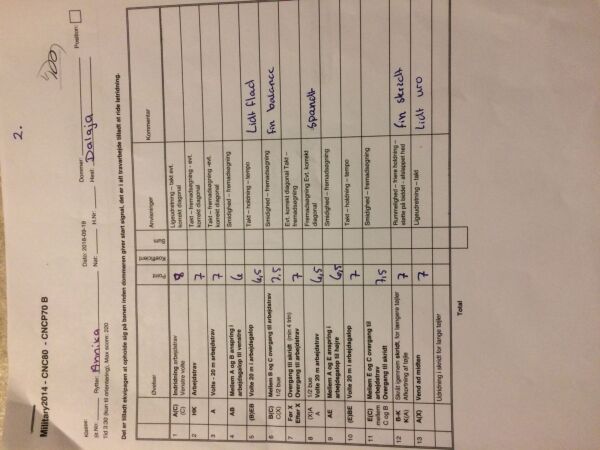 2.
Military2014 - CNC80 - CNCP70 B
Klasse: Dato: 2018-09-19 Dommer: Position:
St.Nr: Rytter: Annika Nat: H.Nr: Hest: Dalaja
Tid 3:30 (kun til orientering), Max score: 220
Det er tilladt ekvipagen at opholde sig på banen inden dommeren giver start signal, det er i alt travarbejde tilladt at ride letridning.
Øvelser Point Koefficient Sum Anvisninger Kommentar
1 A(C) (C) Indridning arbejdstrav Venstre volte 8 Ligeudretning – takt evt. korrekt diagonal
2 HK Arbejdstrav 7 Takt – fremadsøgning - evt. korrekt diagonal
3 A Volte - 20 m arbejdstrav 7 Takt – fremadsøgning -evt. korrekt diagonal
4 AB Mellem A og B anspring i arbejdsgalop til venstre 6 Smidighed – fremadsøgning
5 (B)EB Volte 20 m arbejdsgalop 6,5 Takt – holdning – tempo Lidt flad
6 B(C) C(X) Mellem B og C overgang til arbejdstrav 1/2 bue 7,5 Smidighed – fremadsøgning fin balance
7 Før X Efter X Overgang til skridt (min 4 trin) Overgang til arbejdstrav 7 Evt. korrekt diagonal Takt – fremadsøgning
8 (X)A A 1/2 bue Volte 20 m arbejdstrav 6,5 Fremadsøgning Evt. korrekt diagonal spændt
9 AE Mellem A og E anspring i arbejdsgalop til højre 6,5 Smidighed – fremadsøgning
10 (E)BE Volte 20 m arbejdsgalop 7 Takt – holdning - tempo
11 E(C) mellem C og B Mellem E og C overgang til arbejdstrav Overgang til skridt 7,5 Smidighed – fremadsøgning
12 B-K K(A) Skråt igennem skridt, for længere tøjler Afkortning af tøjle 7 Rummelighed – friere holdning – støtte på biddet - afslappet hed fin skridt
13 A(X) Vend ad midten 7 Ligeudretning – takt Lidt uro
Udridning i skridt for lange tøjler
Total